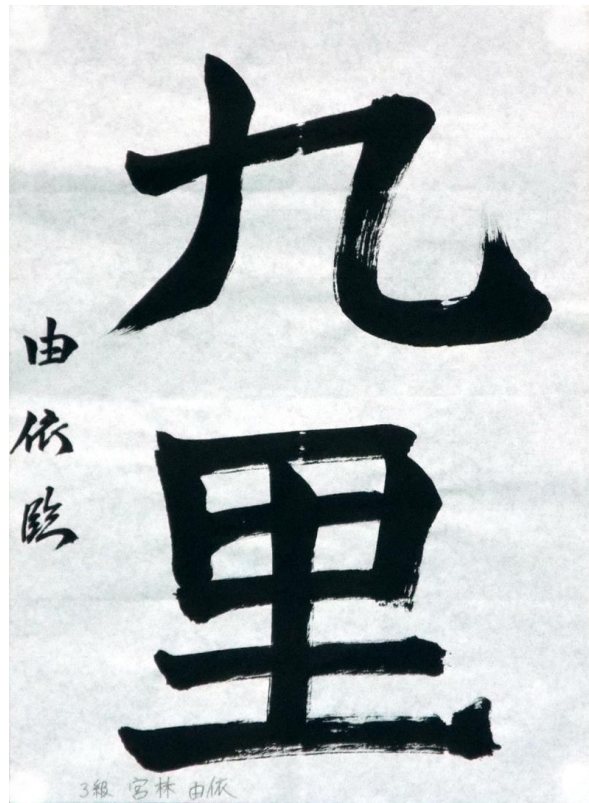 九里
由依臨
3級 宮林 由依